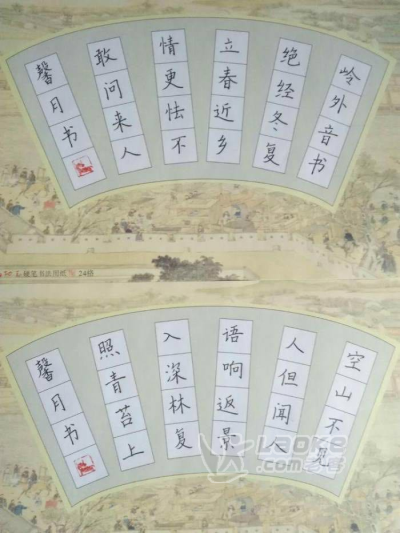 岭外音书
绝经冬复
立春近乡
情更怯不
敢问来人
馨月书
硬笔书法用纸 24格
空山不见
人但闻人
语响返景
入深林复
照青苔上
馨月书
.com